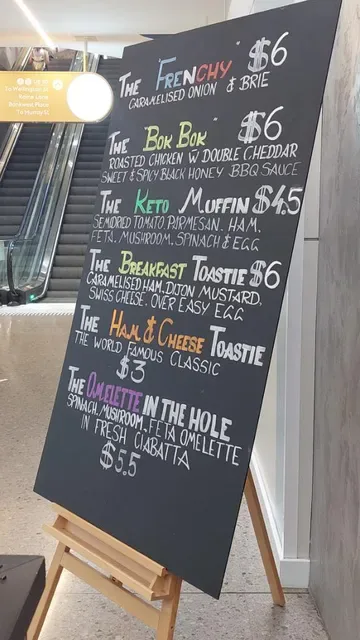 To Wellington St
Rowe Lane
Brookfield Place
To Murray St
The "Frenchy" $6
Caramelised onion & brie
The "Bok Bok" $6
Roasted chicken w double cheddar
Sweet & spicy black honey BBQ sauce
The Keto Muffin $4.5
Semidried tomato, parmesan, ham,
feta, mushroom, spinach & egg
The Breakfast Toastie $6
Caramelised ham, dijon mustard,
swiss cheese, over easy egg
The Ham & Cheese Toastie
The world famous classic
$3
The Omelette in the hole
Spinach, mushroom, feta omelette
in fresh ciabatta
$5.5